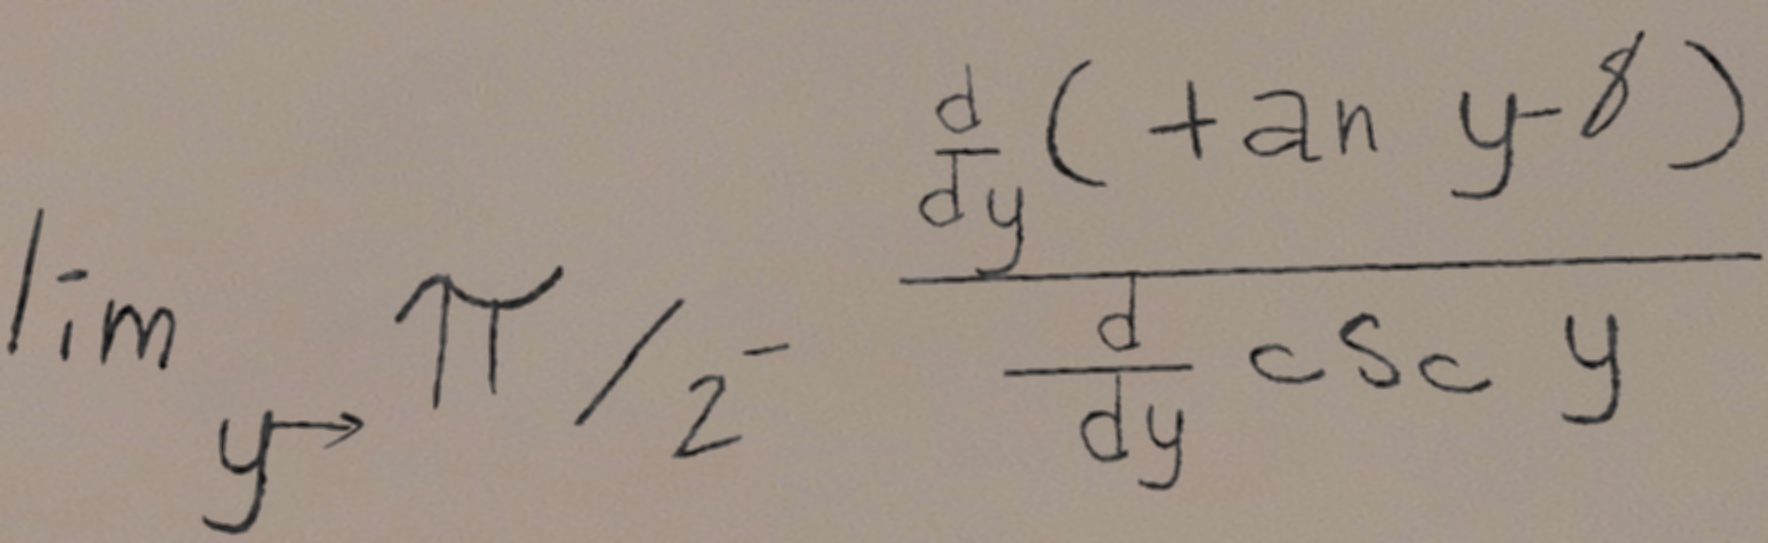 \lim_{y \to \pi/2^-} \frac{\frac{d}{dy}(\tan y - 8)}{\frac{d}{dy} \csc y}